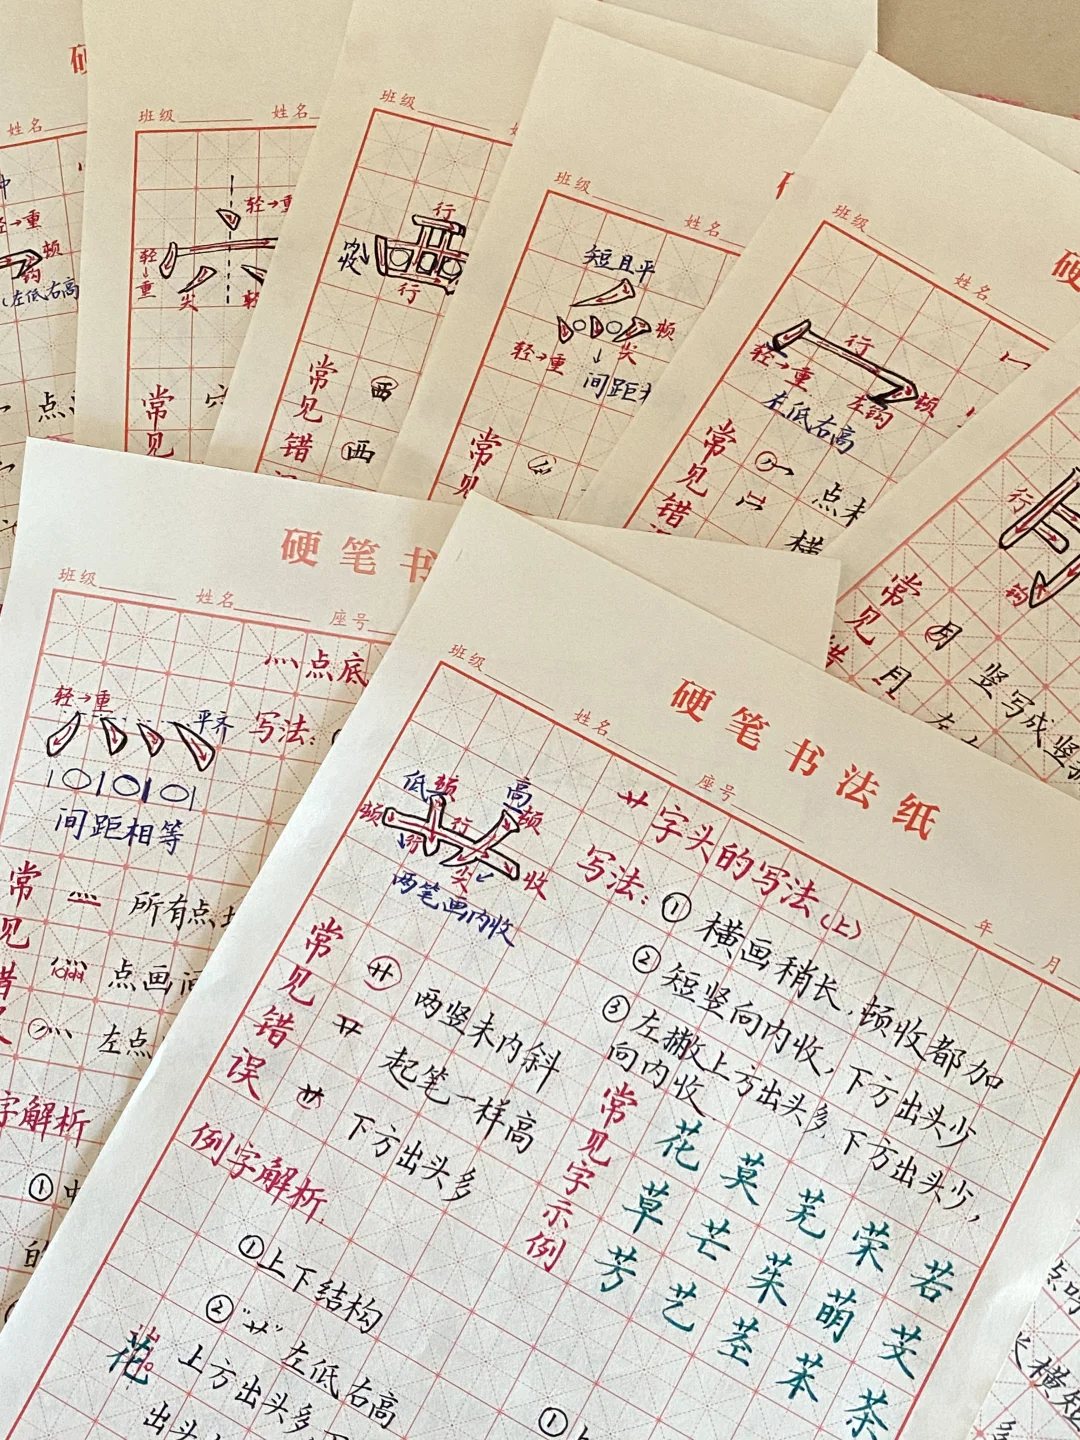 班级
姓名
轻→重
顿
钩
左低右高
点
班级
姓名
轻→重
轻→重
尖
常见
班级
行
内收
行
常见错
西
西
班级
姓名
短且平
顿
尖
轻→重
间距
常见
班级
姓名
行
轻→重
顿
左钩
左低右高
常见错
点未
横
硬
行
钩
常见错
月
竖写成竖
月
左
硬笔书
班级
姓名
座号
灬点底
轻→重
平齐
写法:
间距相等
常见错
所有点
点画间
左点
字解析
①
的
硬笔书法纸
班级
姓名
座号
年
月
艹字头的写法(上)
低
顿
高
顿
顿
行
尖
收
两笔画内收
写法:
①横画稍长,顿收都加
②短竖向内收,下方出头少
③左撇上方出头多,下方出头少,
向内收
常见错误
两竖未内斜
起笔一样高
下方出头多
常见字示例
花莫芜荣若
草芒茱萌芰
芳艺茎苯茶
例字解析
①上下结构
②"艹"左低右高
上方出头多,下
出头
花
①
点
长横短